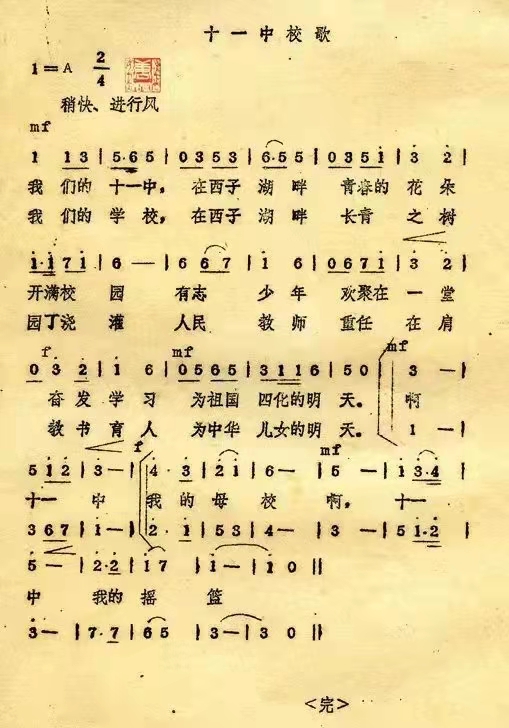 十一中校歌
1=A 2/4
稍快、进行风
mf
1 13 | 5·65 | 0353 | 6·55 | 0351 | 3 2 |
我们的 十一中, 在西子 湖畔 青春的 花朵
我们的 学校, 在西子 湖畔 长青 之树
1·171 | 6 — | 6 67 | 1 6 | 0671 | 3 2 |
开满校 园 有志 少年 欢聚在 一堂
园丁浇 灌 人民 教师 重任 在肩
f mf mf
03 2 | 1 6 | 0565 | 3116 | 50 | 3 — |
奋发 学习 为祖国 四化的明 天。 啊
教书 育人 为中华 儿女的明 天。 1 — |
f mf
5 12 | 3 — | 4·3 | 21 | 6 — | 5 — | 13·4 |
十一 中 我的 母校 啊, 十一
367 | 1 — | 2·1 | 53 | 4 — | 3 — | 51·2 |
5 — | 2·2 | 17 | 1 — | 1 0 ||
中 我的 摇 篮
3 — | 7·7 | 65 | 3 — | 3 0 ||
<完>